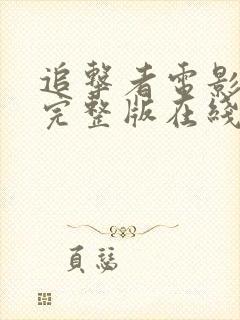 追擊者電影
完整版在綫